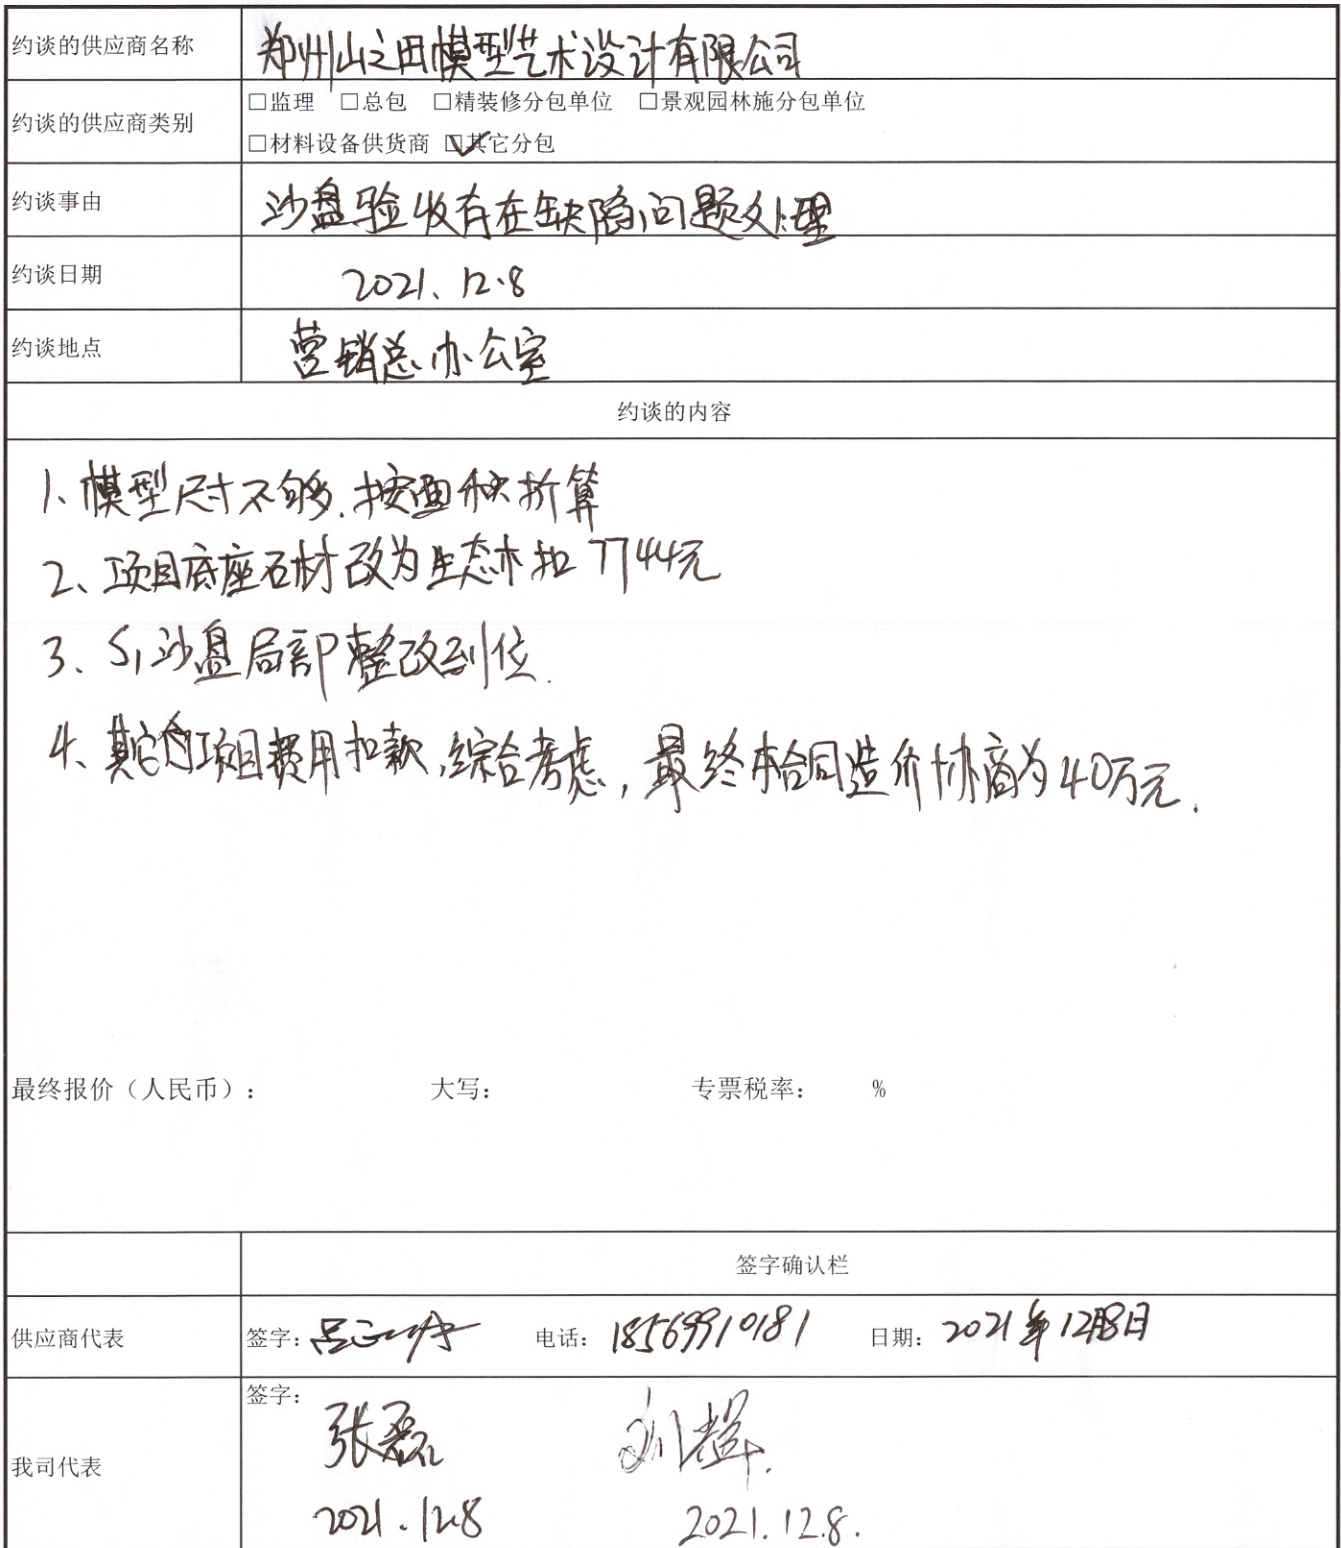 约谈的供应商名称 郑州山之田模型艺术设计有限公司
约谈的供应商类别 □监理 □总包 □精装修分包单位 □景观园林施分包单位
□材料设备供货商 ☑其它分包
约谈事由 沙盘验收存在缺陷问题处理
约谈日期 2021、12.8
约谈地点 营销总办公室
约谈的内容
1、模型尺寸不够.按面积折算
2、项目底座石材改为生态木扣7744元
3、S1沙盘局部整改到位.
4、其它项目费用扣款,综合考虑,最终本合同造价协商为40万元.
最终报价（人民币）： 大写： 专票税率： %
签字确认栏
供应商代表 签字： 电话：18569910181 日期：2021年12月8日
签字：
我司代表 张磊 刘超
2021.12.8 2021.12.8.